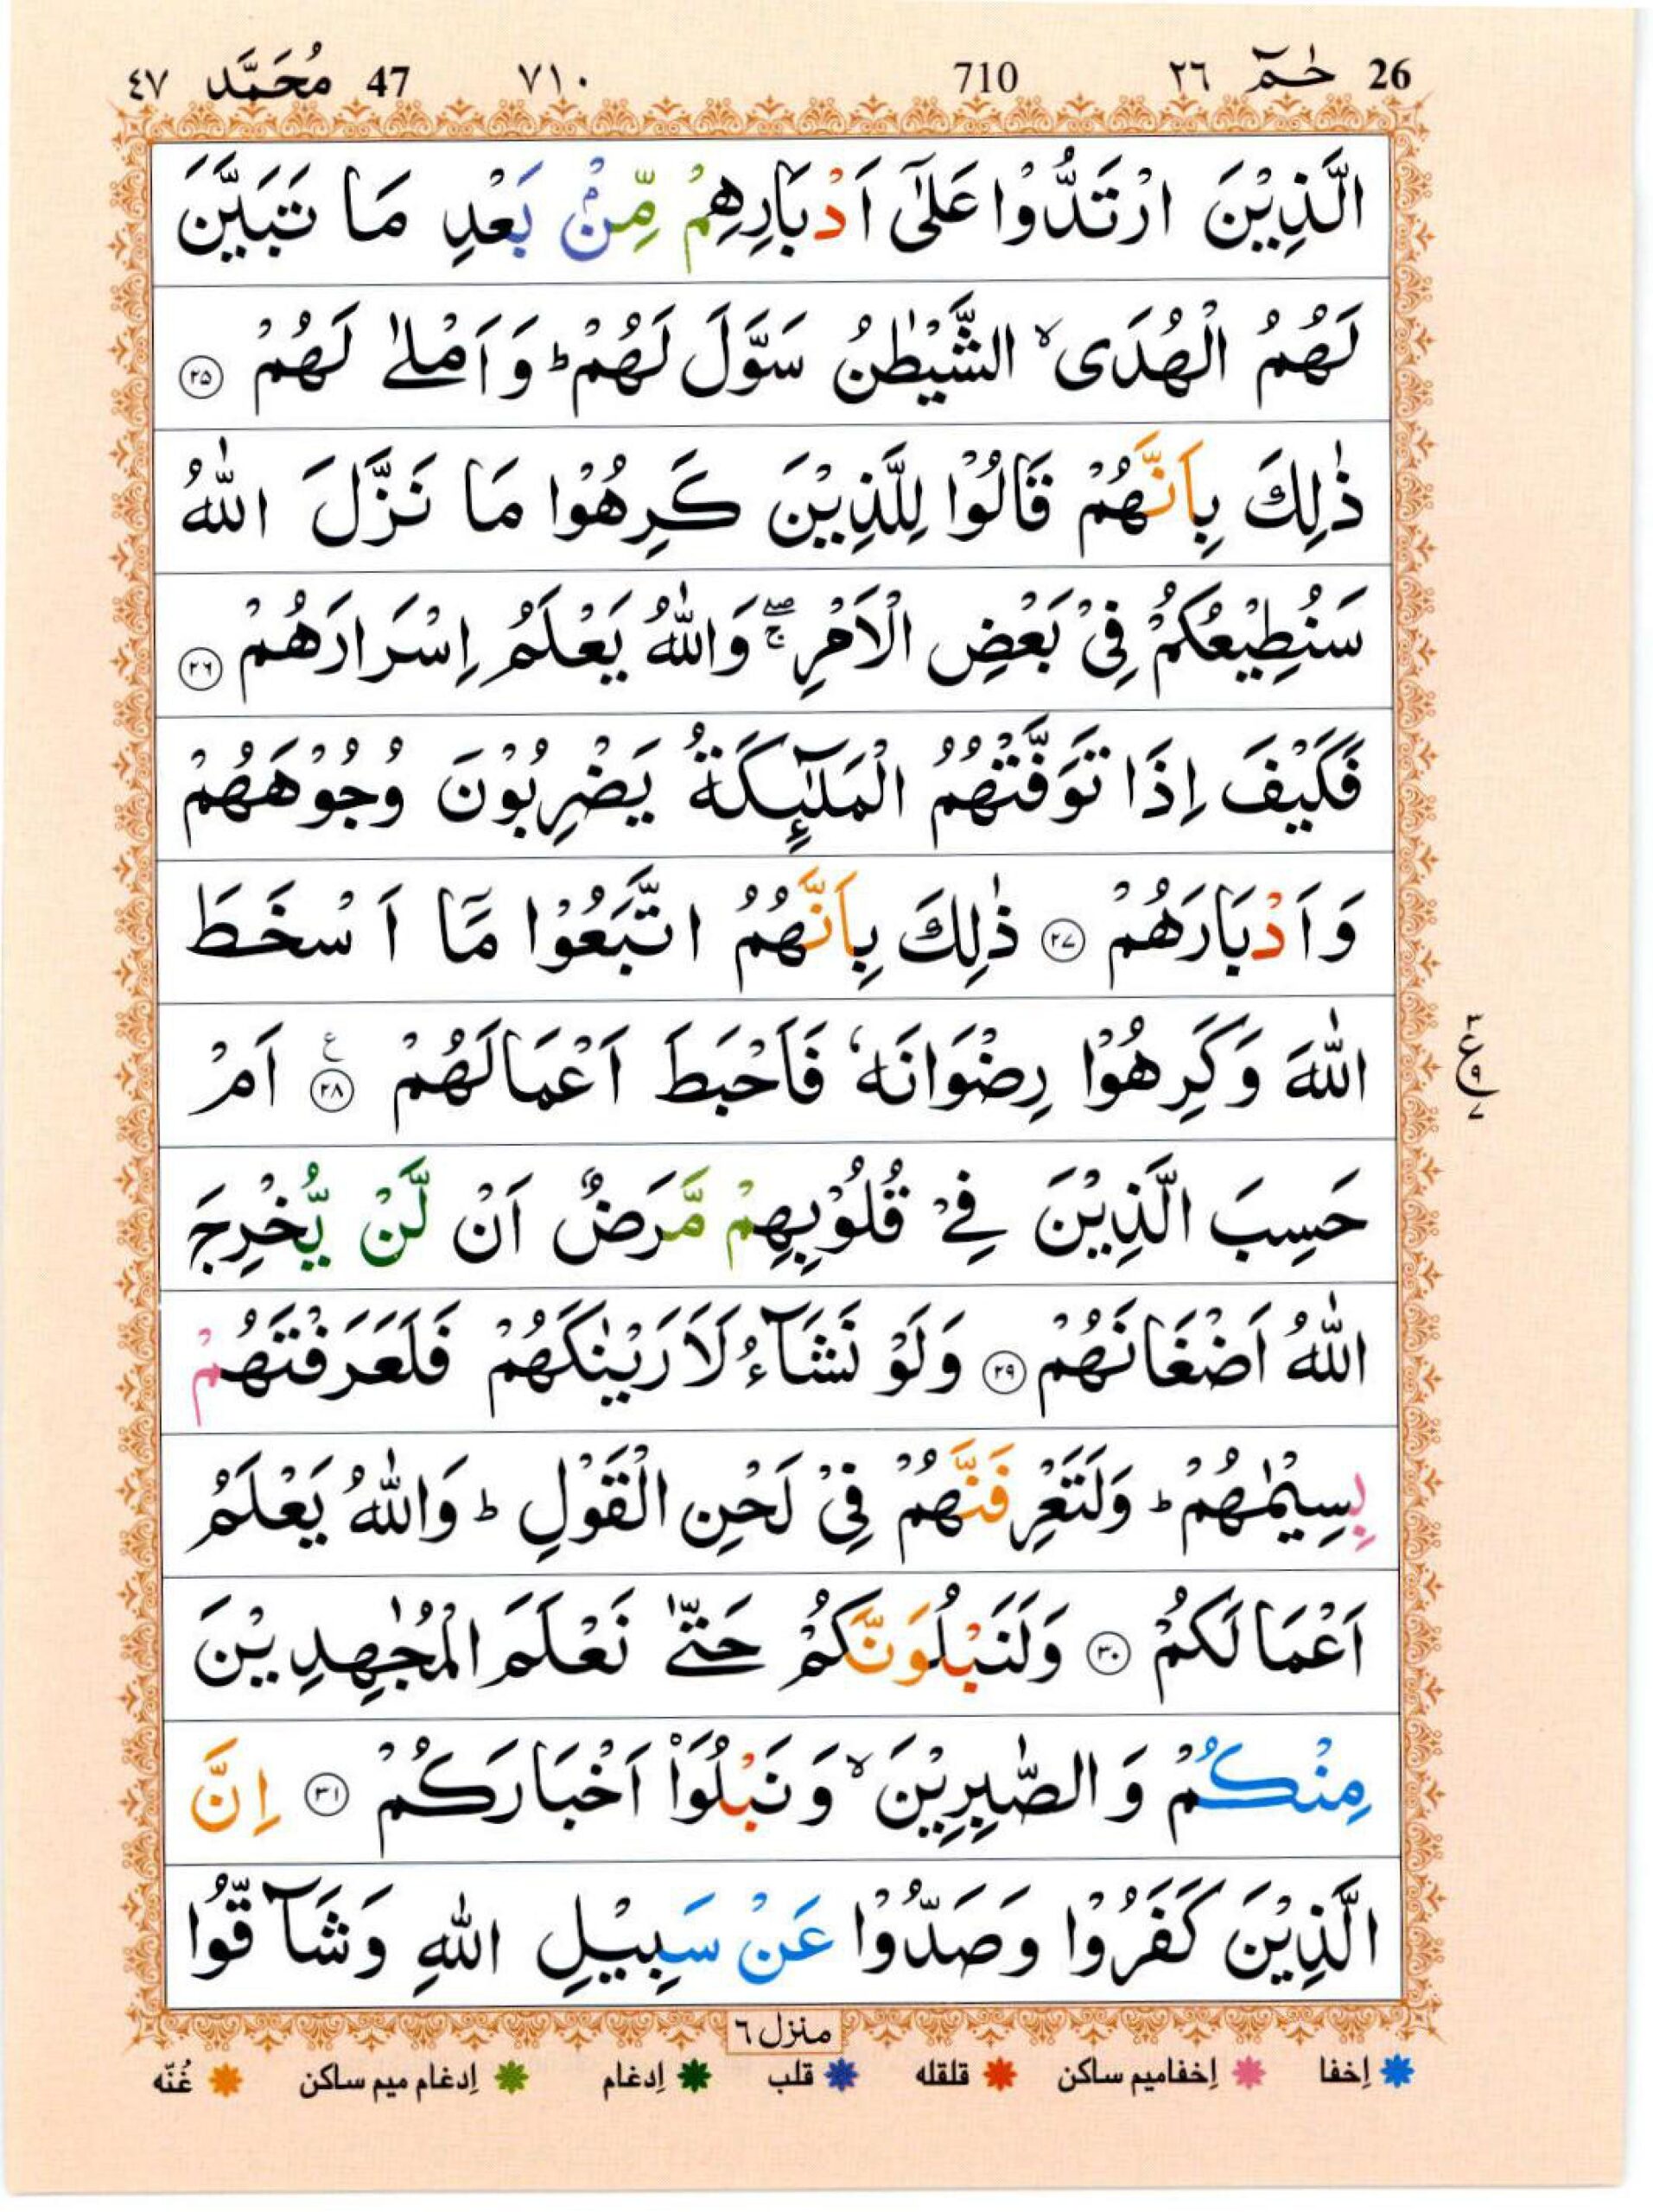 26 حٰمٓ ٢٦ 710 ٧١٠ 47 مُحَمَّد ٤٧
الَّذِيْنَ ارْتَدُّوْا عَلٰٓى اَدْبَارِهِمْ مِّنْۢ بَعْدِ مَا تَبَيَّنَ
لَهُمُ الْهُدَى ۙ الشَّيْطٰنُ سَوَّلَ لَهُمْ ؕ وَاَمْلٰى لَهُمْ ۝۲۵
ذٰلِكَ بِاَنَّهُمْ قَالُوْا لِلَّذِيْنَ كَرِهُوْا مَا نَزَّلَ اللّٰهُ
سَنُطِيْعُكُمْ فِيْ بَعْضِ الْاَمْرِ ۖۚ وَاللّٰهُ يَعْلَمُ اِسْرَارَهُمْ ۝۲۶
فَكَيْفَ اِذَا تَوَفَّتْهُمُ الْمَلٰٓئِكَةُ يَضْرِبُوْنَ وُجُوْهَهُمْ
وَاَدْبَارَهُمْ ۝۲۷ ذٰلِكَ بِاَنَّهُمُ اتَّبَعُوْا مَآ اَسْخَطَ
اللّٰهَ وَكَرِهُوْا رِضْوَانَهٗ فَاَحْبَطَ اَعْمَالَهُمْ ۝۲۸ ع اَمْ
٣ ع ٩ ٧
حَسِبَ الَّذِيْنَ فِيْ قُلُوْبِهِمْ مَّرَضٌ اَنْ لَّنْ يُّخْرِجَ
اللّٰهُ اَضْغَانَهُمْ ۝۲۹ وَلَوْ نَشَآءُ لَاَرَيْنٰكَهُمْ فَلَعَرَفْتَهُمْ
بِسِيْمٰهُمْ ؕ وَلَتَعْرِفَنَّهُمْ فِيْ لَحْنِ الْقَوْلِ ؕ وَاللّٰهُ يَعْلَمُ
اَعْمَالَكُمْ ۝۳۰ وَلَنَبْلُوَنَّكُمْ حَتّٰى نَعْلَمَ الْمُجٰهِدِيْنَ
مِنْكُمْ وَالصّٰبِرِيْنَ ۙ وَنَبْلُوَا۟ اَخْبَارَكُمْ ۝۳۱ اِنَّ
الَّذِيْنَ كَفَرُوْا وَصَدُّوْا عَنْ سَبِيْلِ اللّٰهِ وَشَآقُّوا
منزل ٦
إخفا إخفامیم ساكن قلقله قلب إدغام إدغام میم ساكن غُنّه